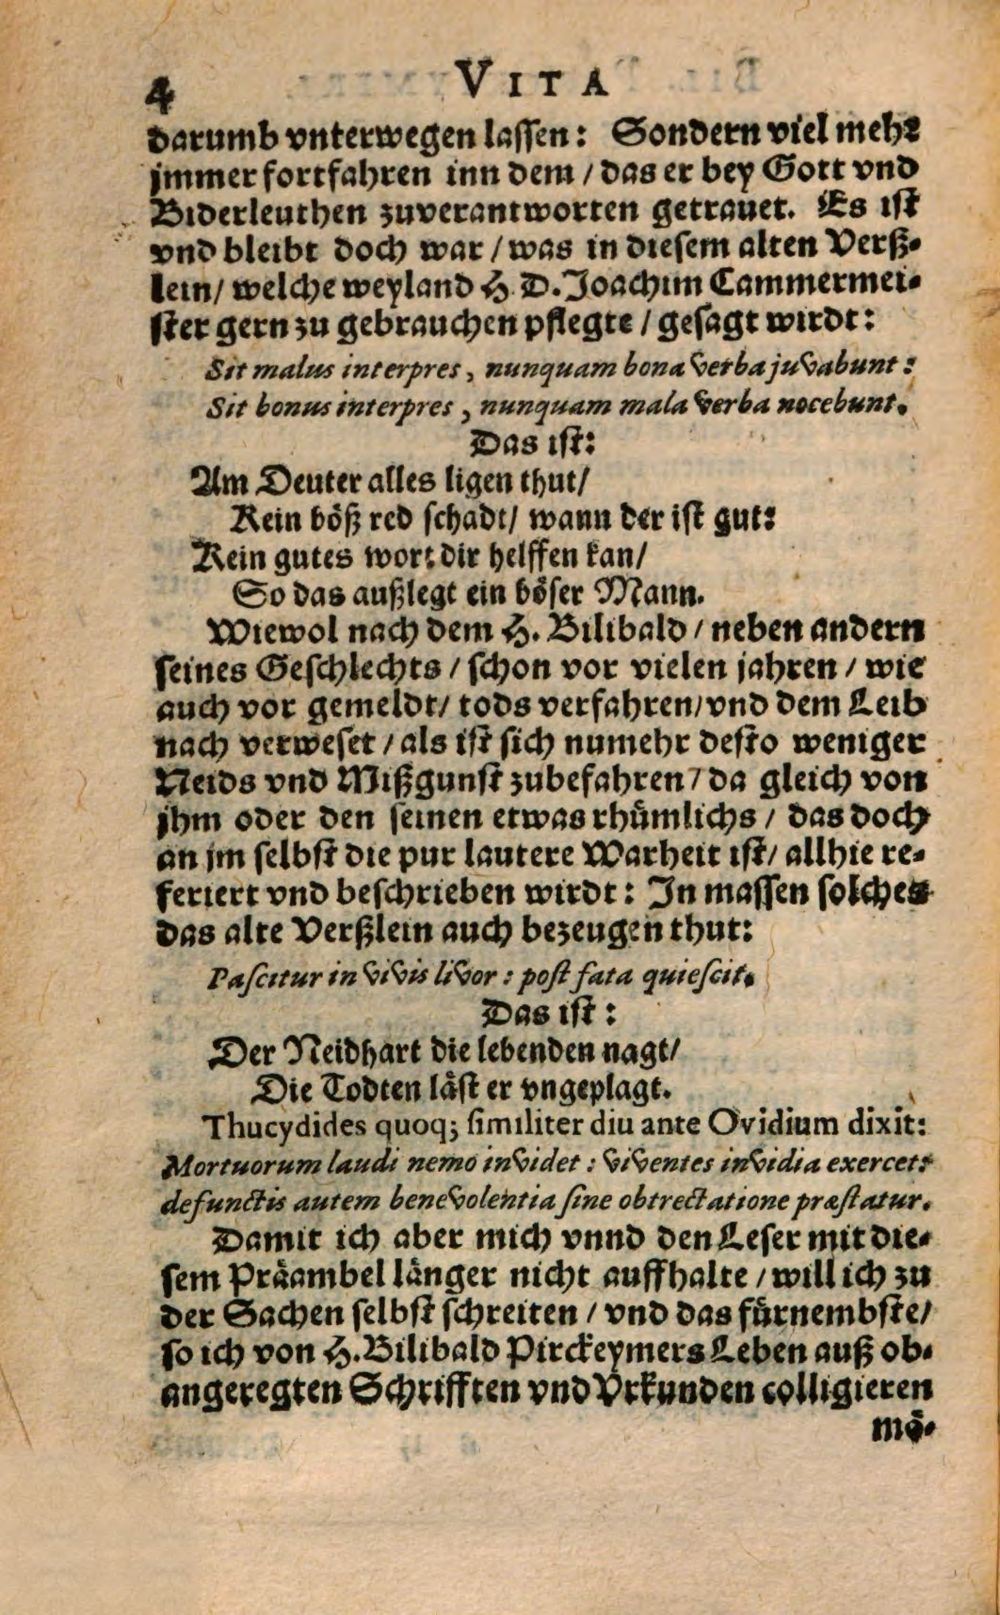 4 VITA
darumb vnterwegen lassen: Sondern viel mehr
jmmer fortfahren inn dem / das er bey Gott vnd
Biderleuthen zuverantworten getrauet. Es ist
vnd bleibt doch war / was in diesem alten Verß-
lein / welche weyland H. D. Joachim Cammermei-
ster gern zu gebrauchen pflegte / gesagt wirdt:
Sit malus interpres, nunquam bona verba juvabunt:
Sit bonus interpres, nunquam mala verba nocebunt.
Das ist:
Am Deuter alles ligen thut /
Kein böß red schadt / wann der ist gut:
Kein gutes wort dir helffen kan /
So das außlegt ein böser Mann.
Wiewol nach dem H. Bilibald / neben andern
seines Geschlechts / schon vor vielen jahren / wie
auch vor gemeldt / tods verfahren / vnd dem Leib
nach verweset / als ist sich numehr desto weniger
Neids vnd Mißgunst zubefahren / da gleich von
jhm oder den seinen etwas rhümlichs / das doch
an jm selbst die pur lautere Warheit ist / allhie re-
feriert vnd beschrieben wirdt: In massen solches
das alte Verßlein auch bezeugen thut:
Pascitur in vivis livor: post fata quiescit.
Das ist:
Der Neidhart die lebenden nagt /
Die Todten läst er vngeplagt.
Thucydides quoq; similiter diu ante Ovidium dixit:
Mortuorum laudi nemo invidet: viventes invidia exercet:
defunctis autem benevolentia sine obtrectatione præstatur.
Damit ich aber mich vnnd den Leser mit die-
sem Präambel länger nicht auffhalte / will ich zu
der Sachen selbst schreiten / vnd das fürnembste /
so ich von H. Bilibald Pirckeymers Leben auß ob-
angeregten Schrifften vnd Vrkunden colligieren
mö-